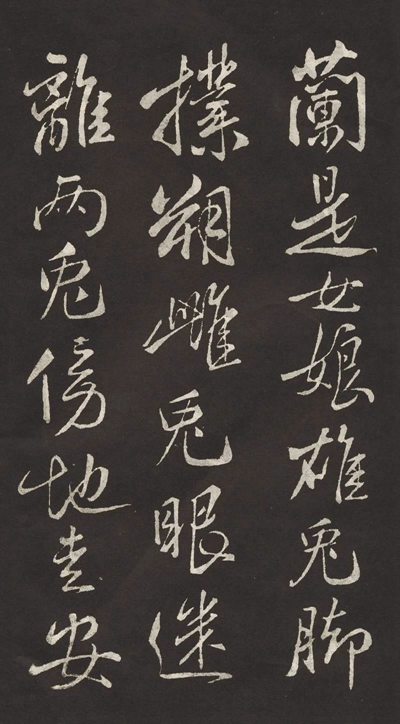 蘭是女娘雄兎脚
撲朔雌兎眼迷
離兩兎傍地走安